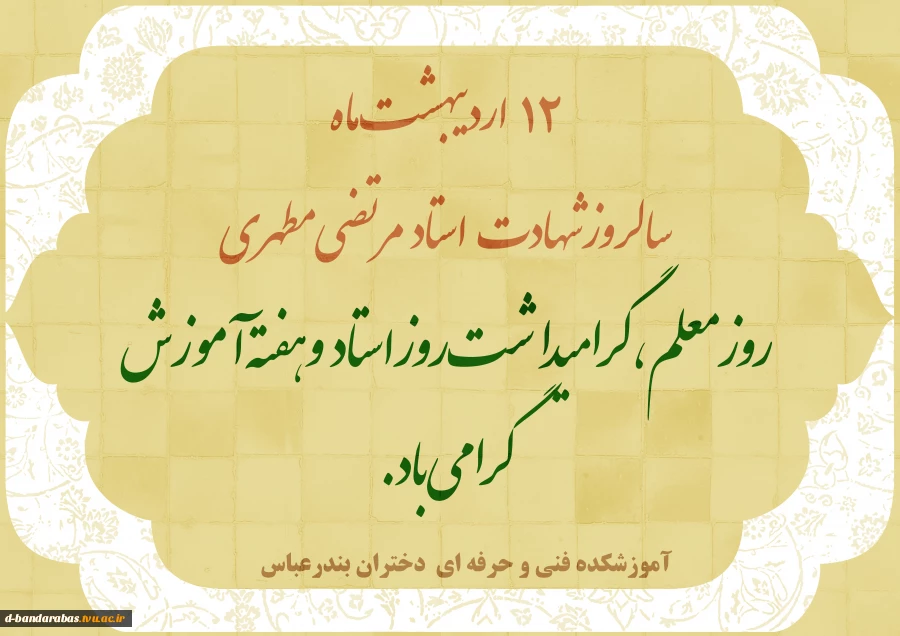 ۱۲ اردیبهشت‌ماه
سالروز شهادت استاد مرتضی مطهری
روز معلم، گرامیداشت روز استاد و هفتهٔ آموزش
گرامی باد.
آموزشکده فنی و حرفه ای دختران بندرعباس
d-bandarabas.tvu.ac.ir